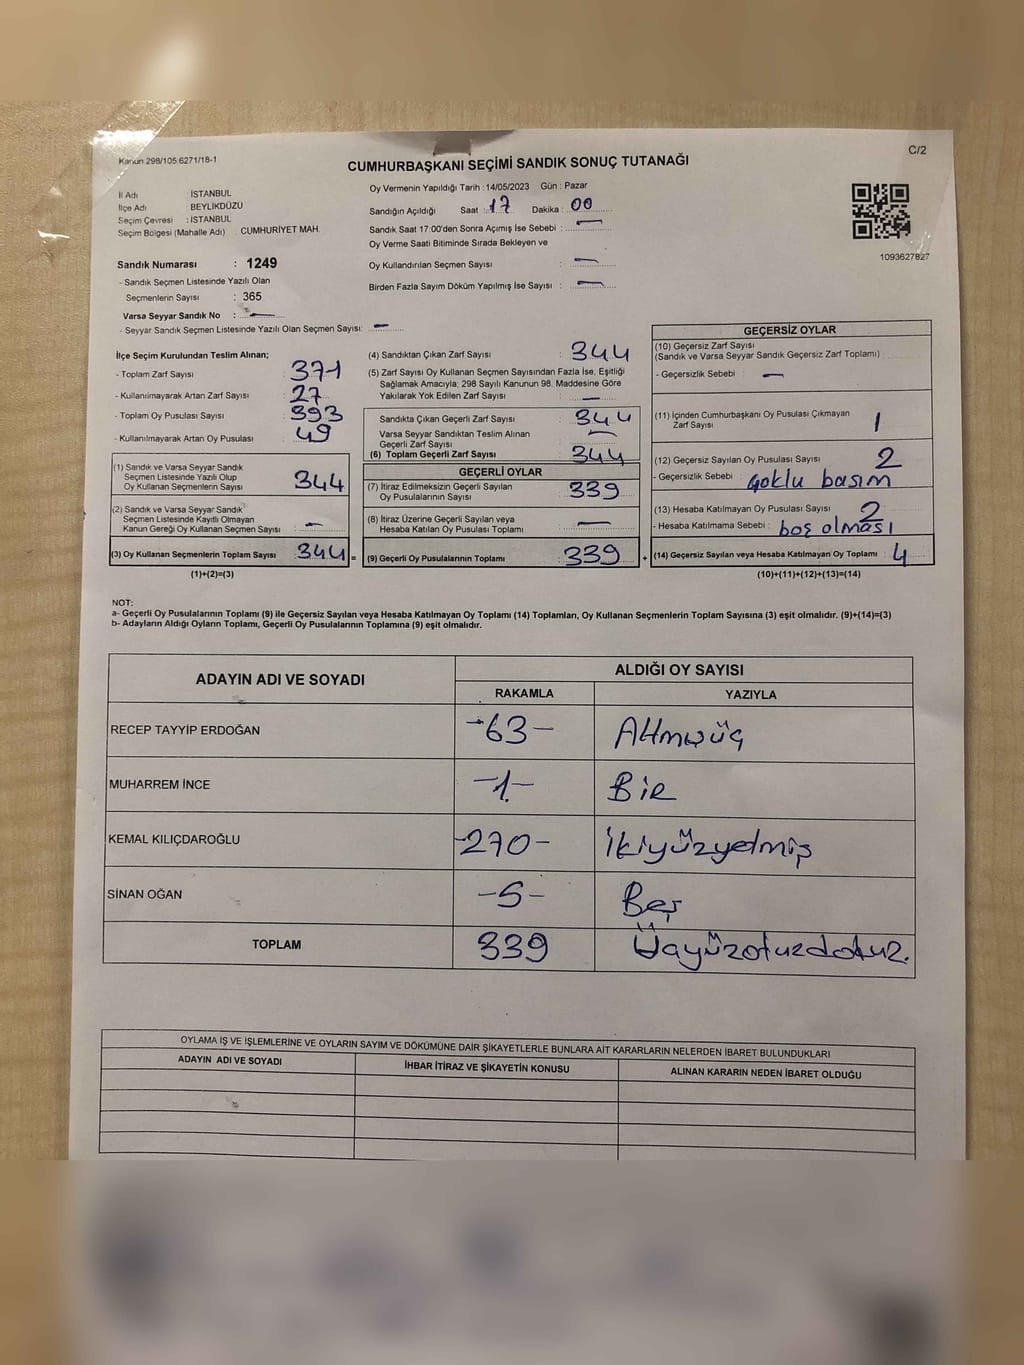 Kanun 298/105,6271/18-1
C/2
CUMHURBAŞKANI SEÇİMİ SANDIK SONUÇ TUTANAĞI
İl Adı İSTANBUL
İlçe Adı BEYLİKDÜZÜ
Seçim Çevresi : İSTANBUL
Seçim Bölgesi (Mahalle Adı) CUMHURİYET MAH.
Oy Vermenin Yapıldığı Tarih : 14/05/2023 Gün : Pazar
Sandığın Açıldığı Saat : 17 Dakika : 00
Sandık Saat 17:00'den Sonra Açımış İse Sebebi : —
Oy Verme Saati Bitiminde Sırada Bekleyen ve
Oy Kullandırılan Seçmen Sayısı : —
Birden Fazla Sayım Döküm Yapılmış İse Sayısı : —
1093627827
Sandık Numarası : 1249
- Sandık Seçmen Listesinde Yazılı Olan
Seçmenlerin Sayısı : 365
Varsa Seyyar Sandık No : —
- Seyyar Sandık Seçmen Listesinde Yazılı Olan Seçmen Sayısı: —
İlçe Seçim Kurulundan Teslim Alınan;
- Toplam Zarf Sayısı : 371
- Kullanılmayarak Artan Zarf Sayısı : 27
- Toplam Oy Pusulası Sayısı : 393
- Kullanılmayarak Artan Oy Pusulası : 49
(1) Sandık ve Varsa Seyyar Sandık
Seçmen Listesinde Yazılı Olup
Oy Kullanan Seçmenlerin Sayısı : 344
(2) Sandık ve Varsa Seyyar Sandık
Seçmen Listesinde Kayıtlı Olmayan
Kanun Gereği Oy Kullanan Seçmen Sayısı : —
(3) Oy Kullanan Seçmenlerin Toplam Sayısı : 344 =
(1)+(2)=(3)
(4) Sandıktan Çıkan Zarf Sayısı : 344
(5) Zarf Sayısı Oy Kullanan Seçmen Sayısından Fazla İse, Eşitliği
Sağlamak Amacıyla; 298 Sayılı Kanunun 98. Maddesine Göre
Yakılarak Yok Edilen Zarf Sayısı : —
Sandıkta Çıkan Geçerli Zarf Sayısı : 344
Varsa Seyyar Sandıktan Teslim Alınan
Geçerli Zarf Sayısı : —
(6) Toplam Geçerli Zarf Sayısı : 344
GEÇERLİ OYLAR
(7) İtiraz Edilmeksizin Geçerli Sayılan
Oy Pusulalarının Sayısı : 339
(8) İtiraz Üzerine Geçerli Sayılan veya
Hesaba Katılan Oy Pusulası Toplamı : —
(9) Geçerli Oy Pusulalarının Toplamı : 339 +
GEÇERSİZ OYLAR
(10) Geçersiz Zarf Sayısı
(Sandık ve Varsa Seyyar Sandık Geçersiz Zarf Toplamı) :
- Geçersizlik Sebebi : —
(11) İçinden Cumhurbaşkanı Oy Pusulası Çıkmayan
Zarf Sayısı : 1
(12) Geçersiz Sayılan Oy Pusulası Sayısı : 2
- Geçersizlik Sebebi : çoklu basım
(13) Hesaba Katılmayan Oy Pusulası Sayısı : 2
- Hesaba Katılmama Sebebi : boş olması
(14) Geçersiz Sayılan veya Hesaba Katılmayan Oy Toplamı : 4
(10)+(11)+(12)+(13)=(14)
NOT:
a- Geçerli Oy Pusulalarının Toplamı (9) ile Geçersiz Sayılan veya Hesaba Katılmayan Oy Toplamı (14) Toplamları, Oy Kullanan Seçmenlerin Toplam Sayısına (3) eşit olmalıdır. (9)+(14)=(3)
b- Adayların Aldığı Oyların Toplamı, Geçerli Oy Pusulalarının Toplamına (9) eşit olmalıdır.
ADAYIN ADI VE SOYADI
ALDIĞI OY SAYISI
RAKAMLA YAZIYLA
RECEP TAYYİP ERDOĞAN -63- Altmışüç
MUHARREM İNCE -1- Bir
KEMAL KILIÇDAROĞLU -270- İkiyüzyetmiş
SİNAN OĞAN -5- Beş
TOPLAM 339 Üçyüzotuzdokuz.
OYLAMA İŞ VE İŞLEMLERİNE VE OYLARIN SAYIM VE DÖKÜMÜNE DAİR ŞİKAYETLERLE BUNLARA AİT KARARLARIN NELERDEN İBARET BULUNDUKLARI
ADAYIN ADI VE SOYADI İHBAR İTİRAZ VE ŞİKAYETİN KONUSU ALINAN KARARIN NEDEN İBARET OLDUĞU